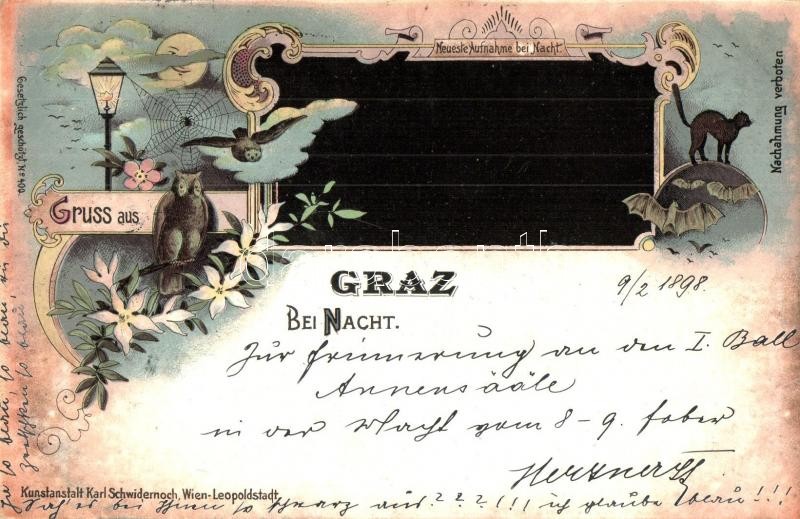 Neueste Aufnahme bei Nacht.
Gesetzlich geschützt No 400.
Nachahmung verboten
Gruss aus
GRAZ
BEI NACHT.
9/2 1898.
Zur Erinnerung an den I. Ball
Annensääle
in der Nacht vom 8-9. feber
Kunstanstalt Karl Schwidernoch, Wien-Leopoldstadt.
Sah es bei Ihnen so schwarz aus??? !!! ich glaube blau!!!
so blau, so blau
so blau!